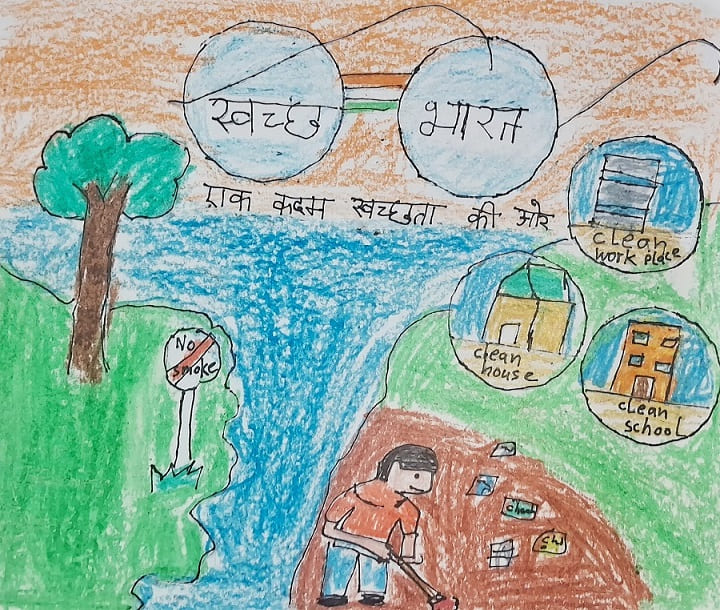 स्वच्छ भारत
एक कदम स्वच्छता की ओर
clean
work place
clean
house
clean
school
No
smoke